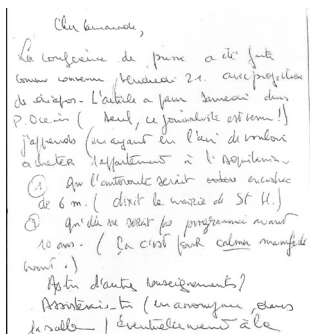 Cher camarade,
La conférence de presse a été faite
comme convenu, vendredi 21. avec projection
de diapos. L'article a paru samedi dans
P. Océan ( seul, ce journaliste est venu !!)
J'apprends (en ayant eu l'air de vouloir
acheter 1 appartement à l'Aquilain
① que l'autoroute serait encaissée
de 6 m. ( dixit la mairie de St H.)
② qu'elle ne serait pas programmée avant
10 ans. ( Ça c'est pour calmer
avant.)
As-tu d'autres renseignements?
Assisteras-tu ( en anonyme, dans
la salle ) éventuellement à la